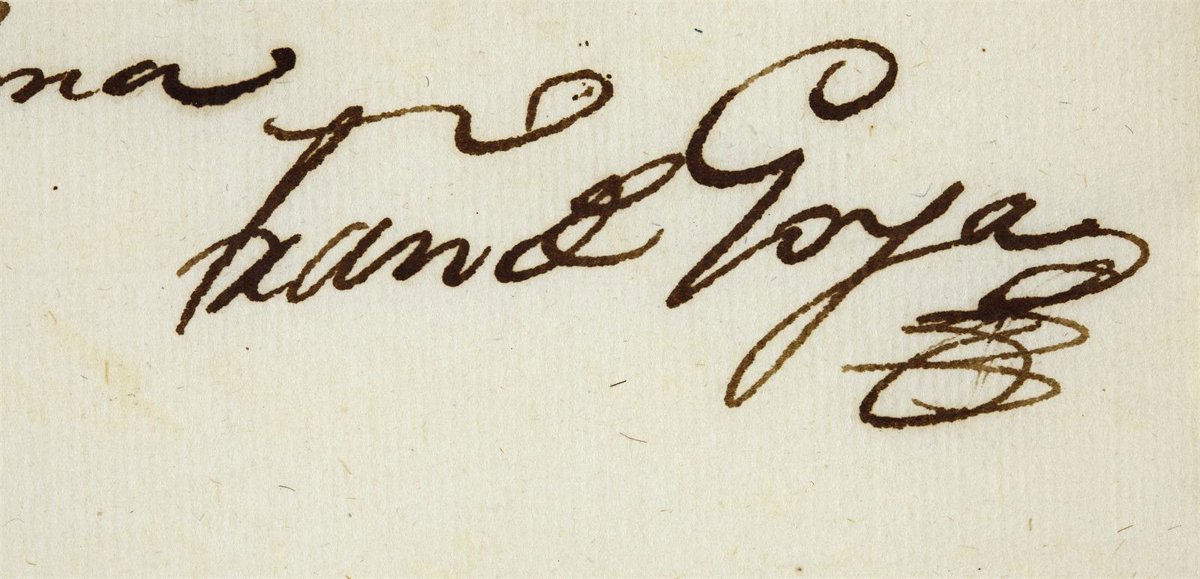 na
Franco Goya